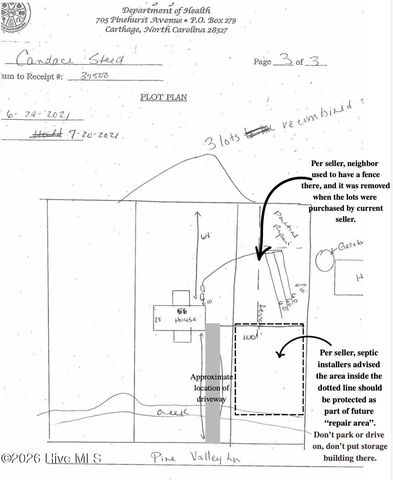 Department of Health
705 Pinehurst Avenue • P.O. Box 279
Carthage, North Carolina 28327
Candace Steed
Page 3 of 3
um to Receipt #: 34500
PLOT PLAN
6-24-2021
7-20-2021
3 lots recombined
Per seller, neighbor
used to have a fence
there, and it was removed
when the lots were
purchased by current
seller.
Potential
Repair
64'
10
Gazebo
H
56
28 HOUSE
fence
100'
Approximate
location of
driveway
Per seller, septic
installers advised
the area inside the
dotted line should
be protected as
part of future
“repair area”.
Don't park or drive
on, don't put storage
building there.
Creek
©2026 Hive MLS
Pine Valley Ln